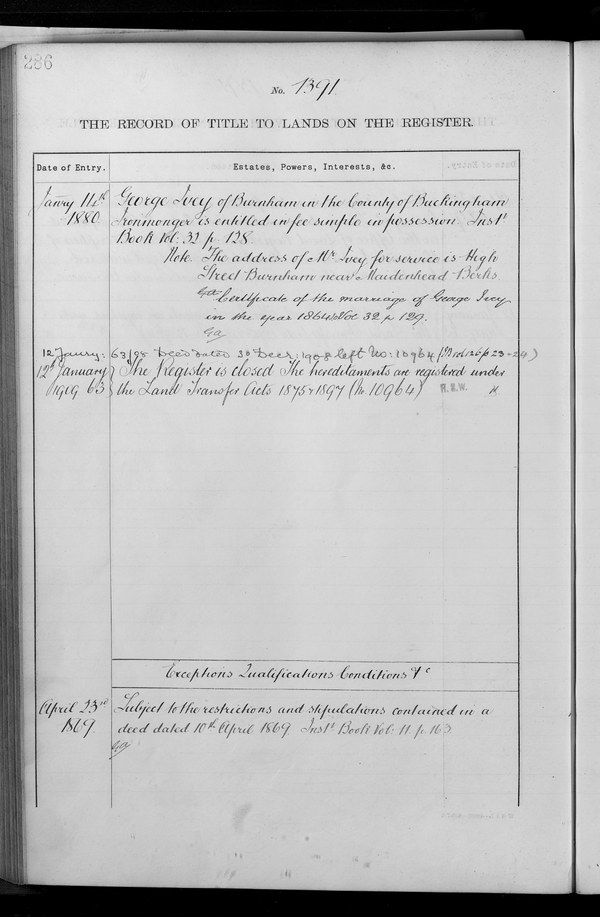 286
No. 1391.
THE RECORD OF TITLE TO LANDS ON THE REGISTER.
Date of Entry. Estates, Powers, Interests, &c.
Janry 14th George Ivey of Burnham in the County of Buckingham
1880 Ironmonger is entitled in fee simple in possession. Inst
Book Vol: 32 p 128
Note. The address of Mr Ivey for service is High
Street Burnham near Maidenhead Berks.
Certificate of the marriage of George Ivey
in the year 1864 Vol 32 p 129.
12 Janry: 63/98 Deed dated 30 Decr: 1908 left No: 10964 (IB vol 126 p 23-24)
12th January The Register is closed The hereditaments are registered under
1909 63 the Land Transfer Acts 1875 & 1897 (No 10964) R.R.W.
Exceptions Qualifications Conditions &c
April 23rd Subject to the restrictions and stipulations contained in a
1869. deed dated 10th April 1869 Inst Book Vol: 11 p. 163.